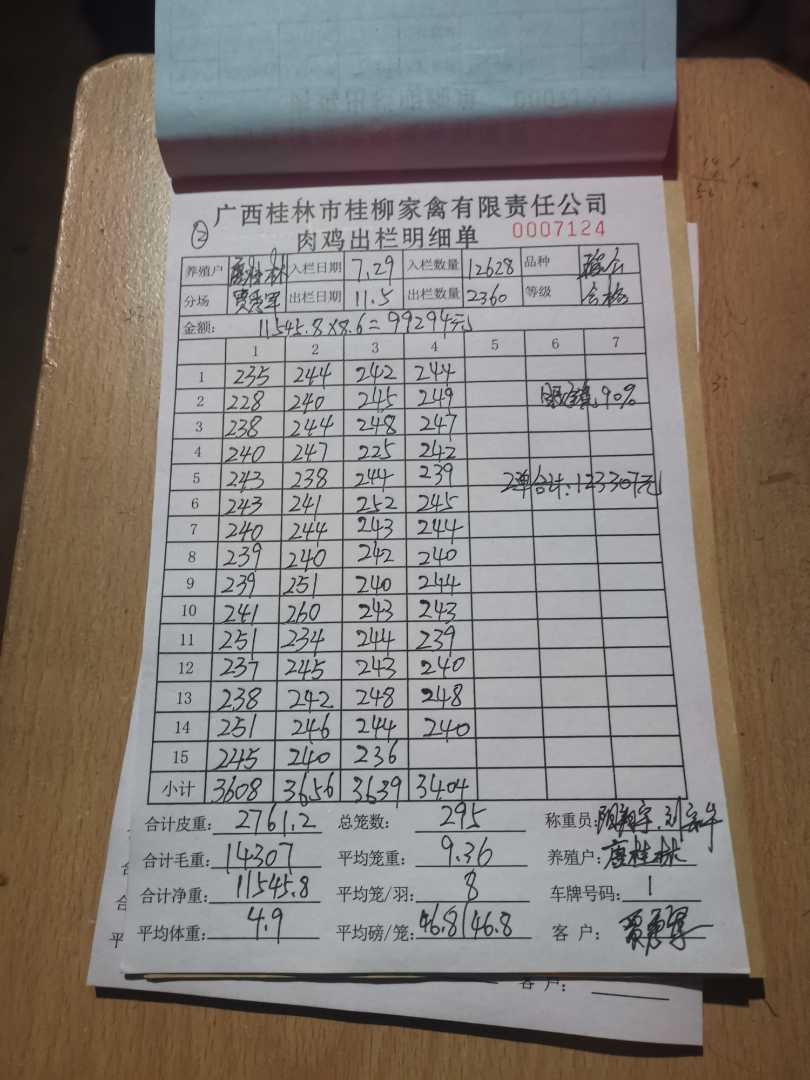 广西桂林市桂柳家禽有限责任公司
② 肉鸡出栏明细单 0007124
养殖户 唐桂林 入栏日期 7.29 入栏数量 12628 品种
分场 贾秀军 出栏日期 11.5 出栏数量 2360 等级 合格
金额: 11545.8×8.6=99294元
1 2 3 4 5 6 7
1 235 244 242 244
2 228 240 245 249 90%
3 238 244 248 247
4 240 247 225 242
5 243 238 244 239 2单合计:123307元
6 243 241 252 245
7 240 244 243 244
8 239 240 242 240
9 239 251 240 244
10 241 260 243 243
11 251 234 244 239
12 237 245 243 240
13 238 242 248 248
14 251 246 244 240
15 245 240 236
小计 3608 3656 3639 3404
合计皮重: 2761.2 总笼数: 295 称重员:
合计毛重: 14307 平均笼重: 9.36 养殖户: 唐桂林
合计净重: 11545.8 平均笼/羽: 8 车牌号码: 1
平均体重: 4.9 平均磅/笼: 46.8/46.8 客户:
客户: